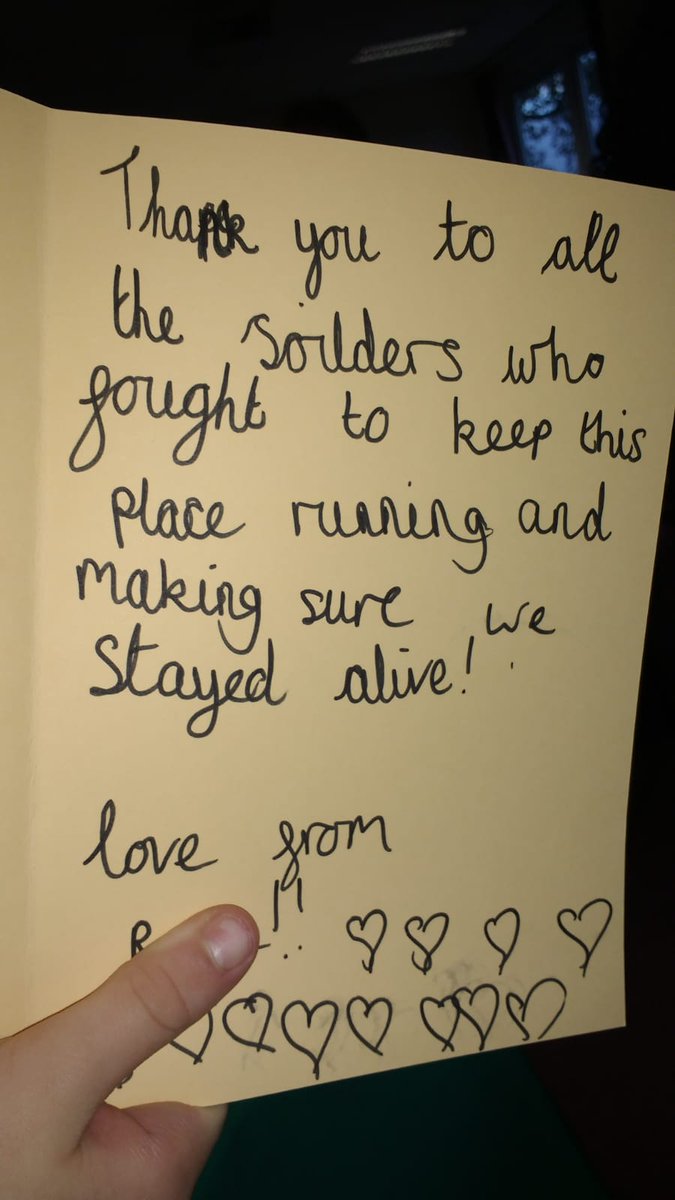 Thank you to all
the soilders who
fought to keep this
place running and
making sure we
stayed alive!
love from
!!